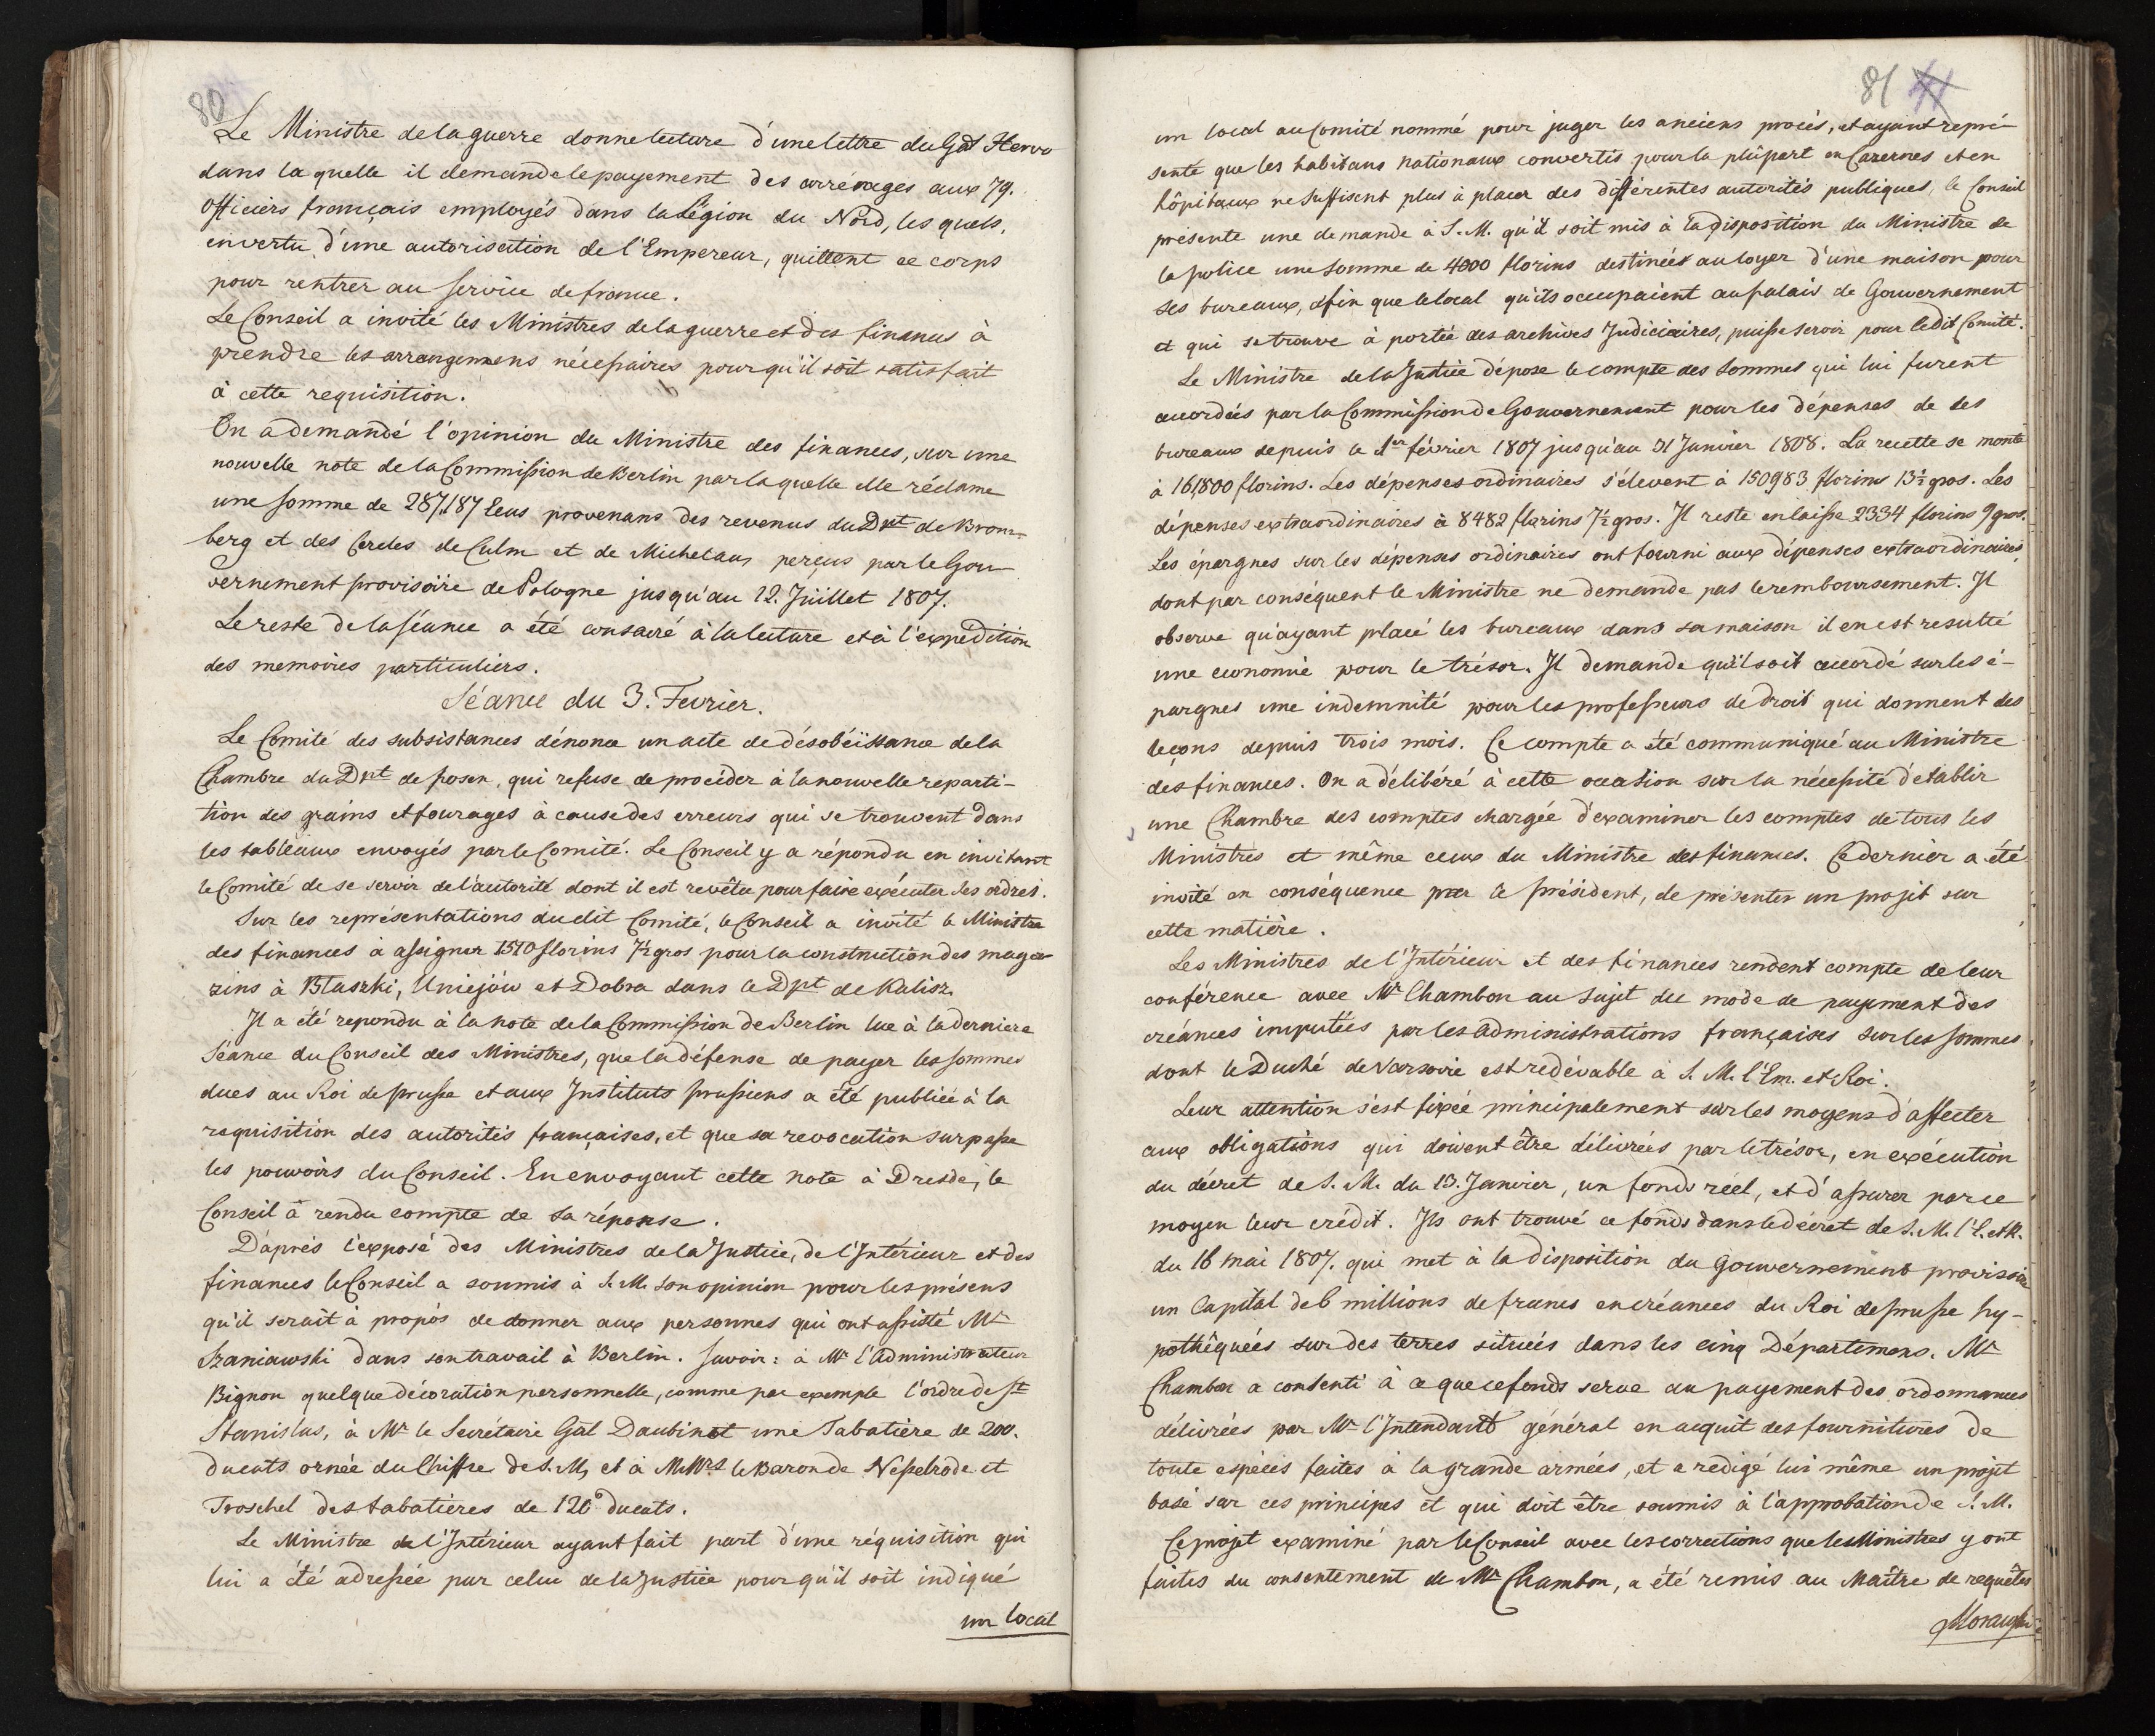 80
Le Ministre de la guerre donne lecture d'une lettre du Gāl Hervo
dans laquelle il demande le payement des arrérages aux 79.
Officiers français employés dans la Légion du Nord, les quels,
en vertu d'une autorisation de l'Empereur, quittent ce corps
pour rentrer au service de france.
Le Conseil a invité les Ministres de la guerre et des finances à
prendre les arrangemens nécessaires pour qu'il soit satisfait
à cette requisition.
On a demandé l'opinion du Ministre des finances, sur une
nouvelle note de la Commission de Berlin par laquelle elle réclame
une somme de 287,187 Ecus provenans des revenus du Dpt de Brom-
berg et des Cercles de Culm et de Michelau, perçus par le Gou-
vernement provisoire de Pologne jusqu'au 12. Juillet 1807.
Le reste de la séance a été consacré à la lecture et à l'expédition
des memoires particuliers.
Séance du 3. Fevrier.
Le Comité des subsistances dénonce un acte de désobéissance de la
Chambre du Dpt de posen, qui refuse de procéder à la nouvelle reparti-
tion des grains et fourages à cause des erreurs qui se trouvent dans
les tableaux envoyés par le Comité. Le Conseil y a répondu en invitant
le Comité de se servir de l'autorité dont il est revêtu pour faire exécuter ses ordres.
Sur les représentations dudit Comité, le Conseil a invité le Ministre
des finances à assigner 1510 florins 7½ gros pour la construction des maga-
zins à Blaszki, Uniejów et Dobra dans le Dpt de Kalisz.
Il a été repondu à la note de la Commission de Berlin lue à la derniere
Séance du Conseil des Ministres, que la défense de payer les sommes
dues au Roi de prusse et aux Instituts prussiens a été publiée à la
requisition des autorités françaises, et que sa revocation surpasse
les pouvoirs du Conseil. En envoyant cette note à Dresde, le
Conseil a rendu compte de sa réponse.
D'après l'exposé des Ministres de la Justice, de l'Intérieur et des
finances le Conseil a soumis à S. M. son opinion pour les présens
qu'il serait à propos de donner aux personnes qui ont assisté Mr
Szaniawski dans son travail à Berlin. Savoir: à Mr l'Administrateur
Bignon quelque décoration personnelle, comme par exemple l'ordre de St
Stanislas, à Mr le Secrétaire Gāl Daubinot une Tabatière de 200.
ducats ornée du Chiffre de S. M, et à M.Mrs le Baron de Nesselrode et
Troschel des tabatières de 120 ducats.
Le Ministre de l'Intérieur ayant fait part d'une réquisition qui
lui a été adressée par celui de la Justice pour qu'il soit indiqué
un local
81
un local au Comité nommé pour juger les anciens procés, et ayant repré-
senté que les habitans nationaux convertis pour la plûpart en Cazernes et en
hôpitaux ne suffisent plus à placer des différentes autorités publiques, le Conseil
présente une demande à S. M. qu'il soit mis à la disposition du Ministre de
la police une somme de 4000 florins destinées au loyer d'une maison pour
ses bureaux, afin que le local qu'ils occupaient au palais de Gouvernement
et qui se trouve à portée des archives Judiciaires, puisse servir pour ledit Comité.
Le Ministre de la Justice dépose le compte des sommes qui lui furent
accordées par la Commission de Gouvernement pour les dépenses de ses
bureaux depuis le 1er février 1807 jusqu'au 31 Janvier 1808. La recette se monte
à 161,800 florins. Les dépenses ordinaires s'élevent à 150983 florins 13½ gros. Les
dépenses extraordinaires à 8482 florins 7½ gros. Il reste en laisse 2334 florins 9 gros.
Les épargnes sur les dépenses ordinaires ont fourni aux dépenses extraordinaires,
dont par conséquent le Ministre ne demande pas le remboursement. Il
observe qu'ayant placé les bureaux dans sa maison il en est resulté
une economie pour le trésor. Il demande qu'il soit accordé sur les é-
pargnes une indemnité pour les professeurs de droit qui donnent des
leçons depuis trois mois. Ce compte a été communiqué au Ministre
des finances. On a délibéré à cette occasion sur la nécessité d'etablir
une Chambre des comptes chargée d'examiner les comptes de tous les
Ministres et même ceux du Ministre des finances. Ce dernier a été
invité en conséquence par le président, de présenter un projet sur
cette matière.
Les Ministres de l'Intérieur et des finances rendent compte de leur
conférence avec Mr Chambon au sujet du mode de payement des
créances imputées par les administrations françaises sur les sommes
dont le Duché de Varsovie est redévable à S. M. l'Em. et Roi.
Leur attention s'est fixée principalement sur les moyens d'affecter
aux obligations qui doivent être délivrées par le trésor, en exécution
du décret de S. M. du 13. Janvier, un fonds réel, et d'assurer par ce
moyen leur crédit. Ils ont trouvé ce fonds dans le décret de S. M. l'E. et R.
du 16 mai 1807. qui met à la disposition du Gouvernement provisoire
un Capital de 6 millions de francs en créances du Roi de prusse hy-
pothêquées sur des terres situées dans les cinq Départemens. Mr
Chambon a consenti à ce que ce fonds serve au payement des ordonnances
délivrées par Mr l'Intendant général en acquit des fournitures de
toute espèces faites à la grande armées, et a redigé lui même un projet
basé sur ces principes et qui doit être soumis à l'approbation de S. M.
Ce projet examiné par le Conseil avec les corrections que les Ministres y ont
faites du consentement de Mr Chambon, a été remis au Maître de requêtes